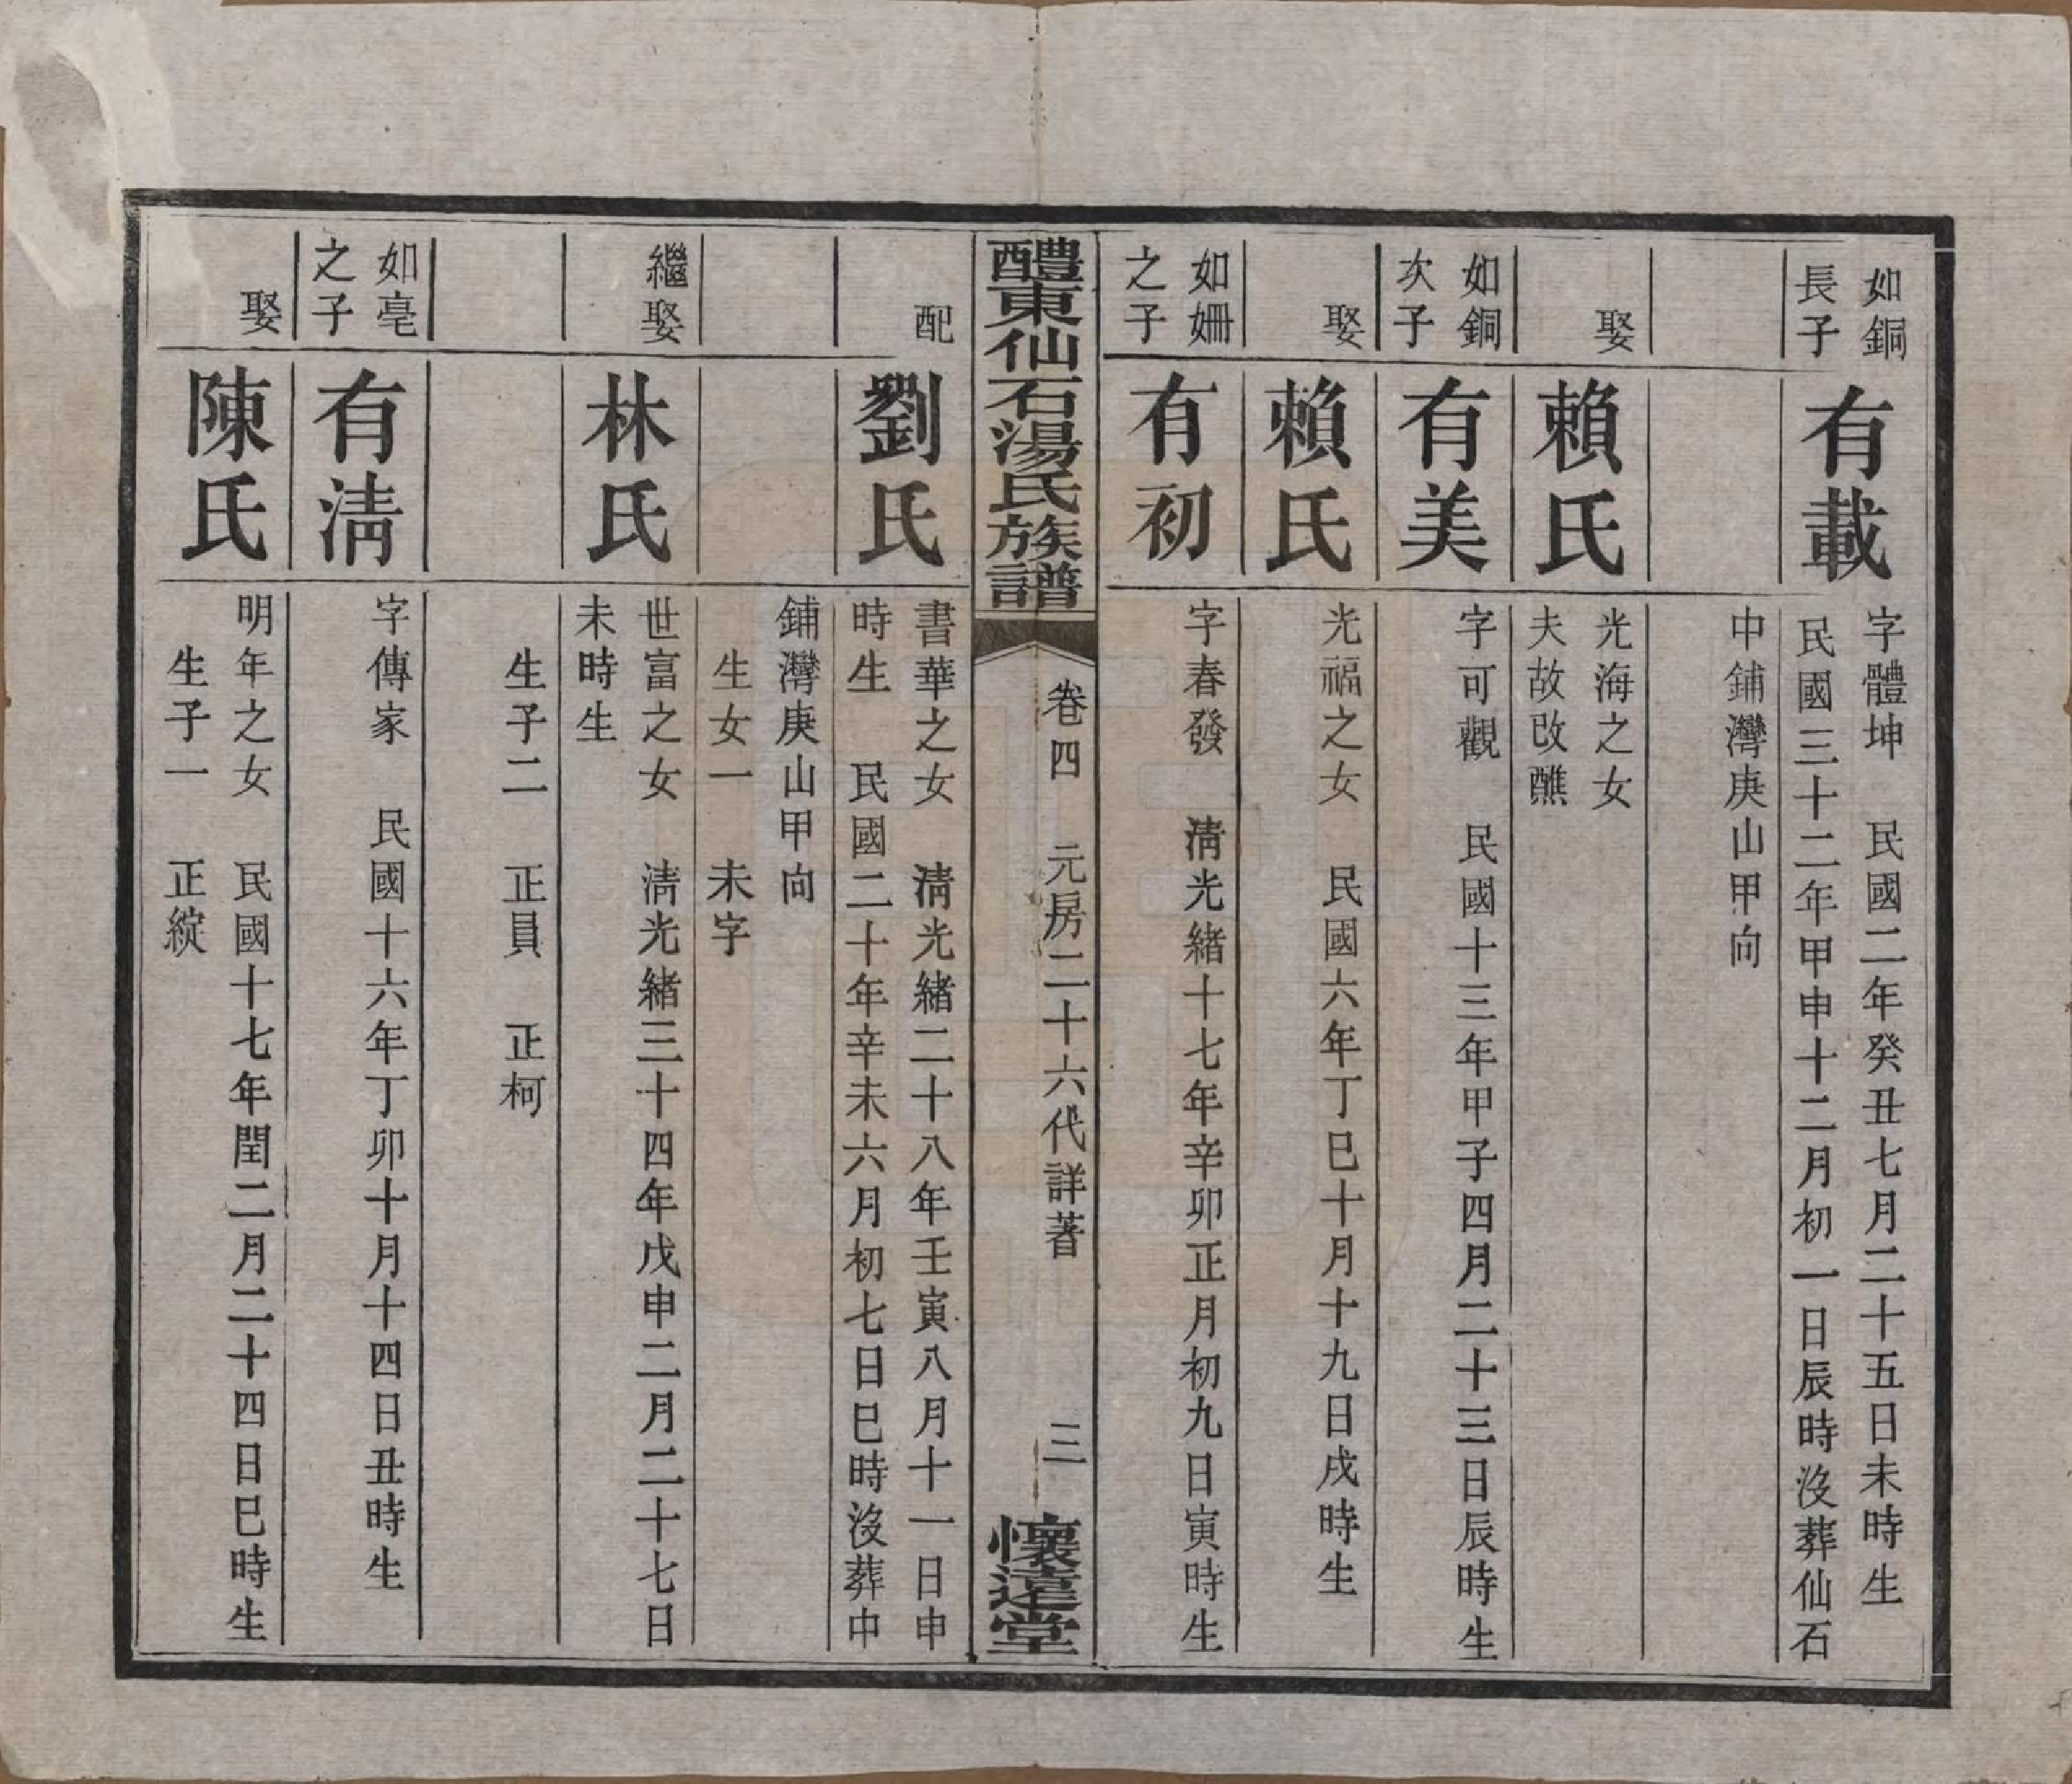 如銅
長子
有載
字體坤　民國二年癸丑七月二十五日未時生
民國三十二年甲申十二月初一日辰時沒葬仙石
中鋪灣庚山甲向
娶
賴氏
光海之女
夫故改醮
如銅
次子
有美
字可觀　民國十三年甲子四月二十三日辰時生
娶
賴氏
光福之女　民國六年丁巳十月十九日戌時生
如姍
之子
有初
字春發　清光緒十七年辛卯正月初九日寅時生
醴東仙石湯氏族譜
卷四　元房二十六代詳著
三
懷遠堂
配
劉氏
書華之女　清光緒二十八年壬寅八月十一日申
時生　民國二十年辛未六月初七日巳時沒葬中
鋪灣庚山甲向
生女一　未字
繼娶
林氏
世富之女　清光緒三十四年戊申二月二十七日
未時生
生子二　正員　正柯
如毫
之子
有清
字傳家　民國十六年丁卯十月十四日丑時生
娶
陳氏
明年之女　民國十七年閏二月二十四日巳時生
生子一　正綻